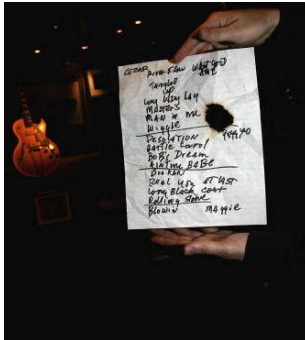 River Flow What Good
Tangled
UP
Lay Lady Lay
Masters
MAN in Me
Wiggle
Desolation
Battle Carol
Bob's Dream
BLAMING BABE
Broken
Real You at last
Long Black Coat
Rolling Stone
Blowin Maggie